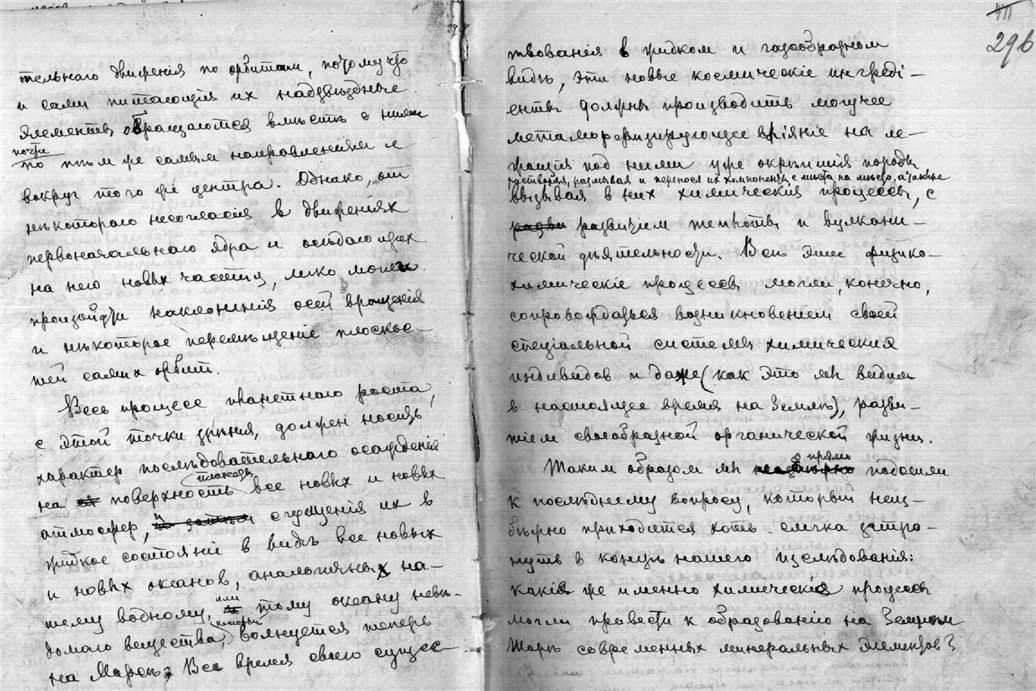 тельнаго движенія по орбитам, потому что
и сами питающія их надзвѣздные
элементы обращаются вмѣстѣ с ними
почти
по тѣм же самым направленіям и
вокруг того же центра. Однако, от
нѣкотораго несогласія в движеніях
первоначальнаго ядра и осѣдающих
на него новых частиц, легко могли
произойти наклоненія осей вращенія
и нѣкоторое перемѣщеніе плоскос-
тей самих орбит.
Весь процесс планетнаго роста,
с этой точки зрѣнія, должен носить
характер послѣдовательнаго осажденія
планеты
на поверхность все новых и новых
атмосфер, сгущенія их в
жидкое состояніе в видѣ все новых
и новых океанов, аналогичных на-
шему водному, или тому океану невѣ-
который
домаго вещества, волнуется теперь
на Марсѣ. Все время своего сущес-
296
твованія в жидком и газообразном
видѣ, эти новые космическіе ингреді-
енты должны производить могучее
метаморфизирующее вліяніе на ле-
жащія под ними уже окрѣпшія породы,
растворяя, размывая и перенося их компоненты с мѣста на мѣсто, а также
вызывая в них химическія процессы, с
развитіем теплоты и вулкани-
ческой дѣятельности. Всѣ эти физико-
химическіе процессы могли, конечно,
сопровождаться возникновеніем своей
спеціальной системы химических
индивидов и даже (как это мы видим
в настоящее время на Землѣ), разви-
тіем своеобразной органической жизни.
прямо
Таким образом мы подошли
к послѣднему вопросу, который неиз-
бѣжно приходится хоть слегка затро-
нуть в концѣ нашего изслѣдованія:
какія же именно химическія процессы
могли привести к образованію на Земном
Шарѣ современных минеральных элементов?